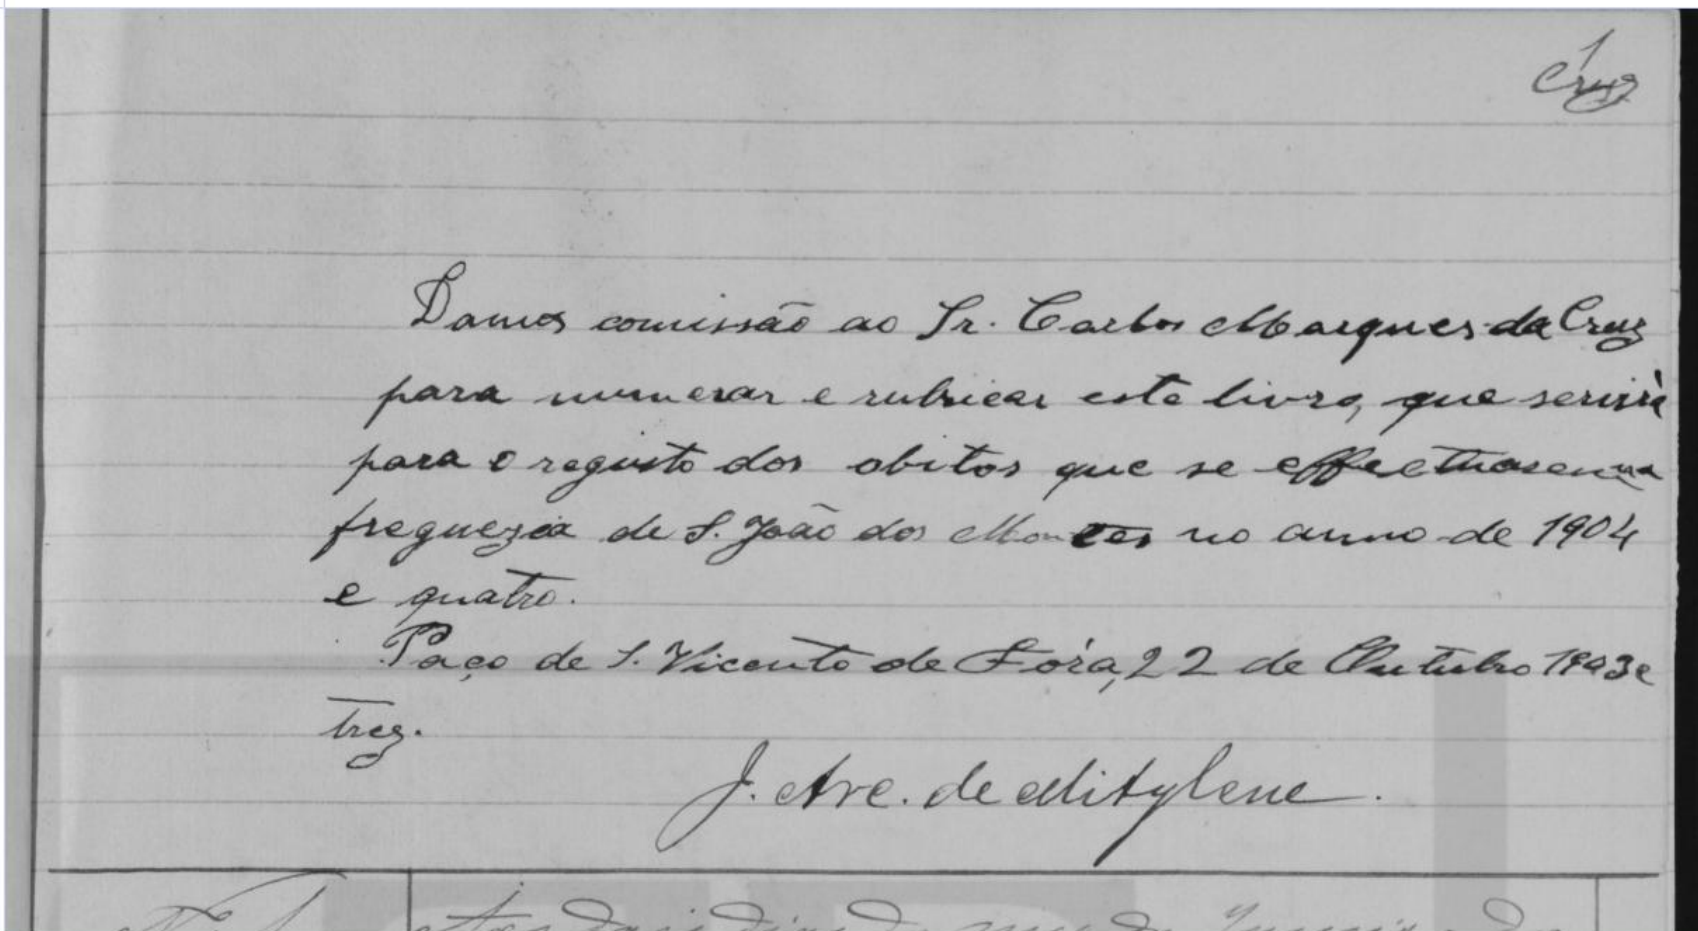 1
Cruz
Damos comissão ao Sr. Carlos Marques da Cruz
para numerar e rubricar este livro, que servirà
para o registo dos obitos que se effectuarem na
freguezia de S. João dos Montes no anno de 1904
e quatro.
Paço de S. Vicente de Fóra, 22 de Outubro 1903 e
trez.
J. Arc. de Mitylene.